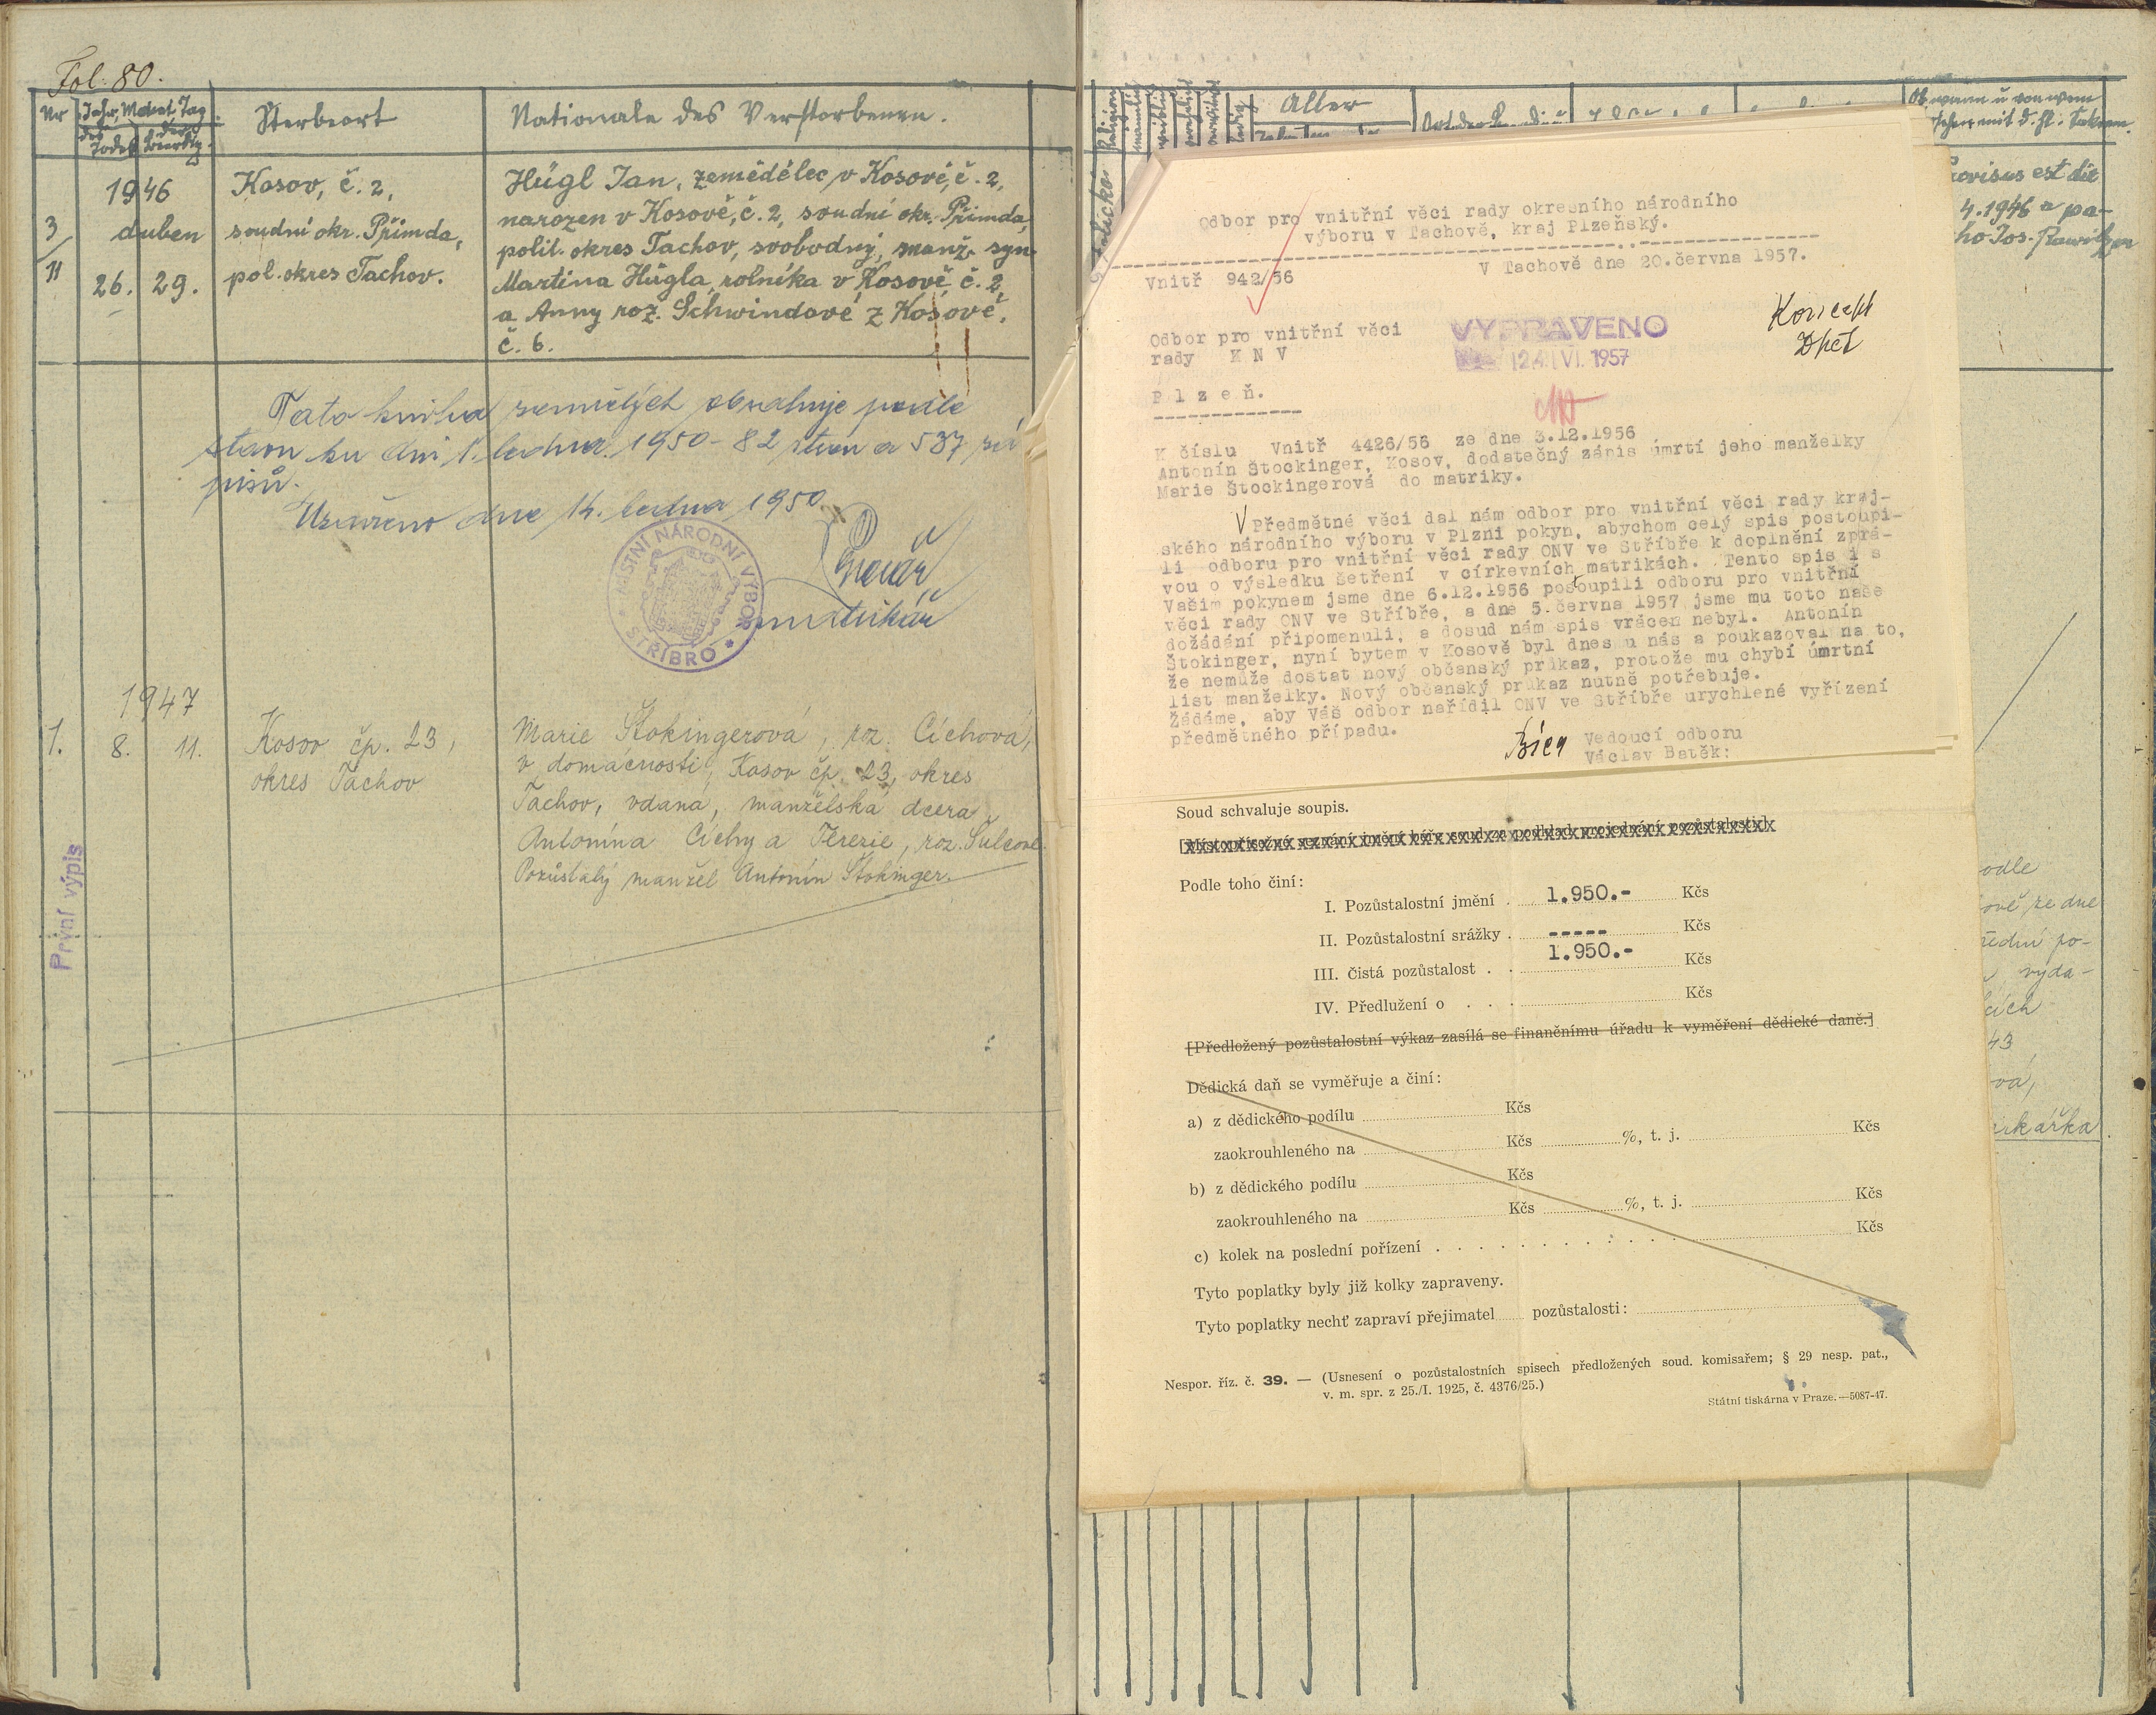 Fol. 80.
Nr
Jahr, Monat, Tag
des Todes
der Beerdig.
Sterbeort
Nationale des Verstorbenen.
1946
3/11
duben
26. 29.
Kosov, č. 2,
soudní okr. Přimda,
pol. okres Tachov.
Hügl Jan, zemědělec v Kosově, č. 2,
narozen v Kosově, č. 2, soudní okr. Přimda,
polit. okres Tachov, svobodný, manž. syn
Martina Hügla, rolníka v Kosově č. 2,
a Anny roz. Schwindové z Kosové,
č. 6.
Tato kniha zemřelých obsahuje podle
stavu ku dni 1. ledna 1950 - 82 stran a 537 zá
pisů.
Uzavřeno dne 14. ledna 1950
MÍSTNÍ NÁRODNÍ VÝBOR
STŘÍBRO
matrikář
1947
1.
8. 11.
Kosov čp. 23,
okres Tachov
Marie Štokingerová, roz. Cíchová,
v domácnosti, Kosov čp. 23, okres
Tachov, vdaná, manželská dcera
Antonína Cíchy a Terezie, roz. Šulcové.
Pozůstalý manžel Antonín Štokinger.
První výpis
Religion
männlich
weiblich
ehelich
verwitwet
ledig
Alter
Ob, wann u von wem
versehen mit d. hl. Sakram.
Provisus est die
4. 1946 a pa-
cho Jos.
Odbor pro vnitřní věci rady okresního národního
výboru v Tachově, kraj Plzeňský.
Vnitř 942/56
V Tachově dne 20.června 1957.
Odbor pro vnitřní věci
rady K N V
P l z e ň.
VYPRAVENO
24 VI. 1957
Koncept
K číslu Vnitř 4426/56 ze dne 3.12.1956
Antonín Štockinger, Kosov, dodatečný zápis úmrtí jeho manželky
Marie Štockingerová do matriky.
V Předmětné věci dal nám odbor pro vnitřní věci rady kraj-
ského národního výboru v Plzni pokyn, abychom celý spis postoupi-
li odboru pro vnitřní věci rady ONV ve Stříbře k doplnění zprá-
vou o výsledku šetření v církevních matrikách. Tento spis i s
Vašim pokynem jsme dne 6.12.1956 postoupili odboru pro vnitřní
věci rady ONV ve Stříbře, a dne 5.června 1957 jsme mu toto naše
dožádání připomenuli, a dosud nám spis vrácen nebyl. Antonín
Štokinger, nyní bytem v Kosově byl dnes u nás a poukazoval na to,
že nemůže dostat nový občanský průkaz, protože mu chybí úmrtní
list manželky. Nový občanský průkaz nutně potřebuje.
Žádáme, aby Váš odbor nařídil ONV ve Stříbře urychlené vyřízení
předmětného případu.
Vedoucí odboru
Václav Batěk:
Soud schvaluje soupis.
[Místopřísežné seznání jmění béře soud za podklad projednání pozůstalosti]
Podle toho činí:
I. Pozůstalostní jmění . 1.950.- Kčs
II. Pozůstalostní srážky . ----- Kčs
III. Čistá pozůstalost . . 1.950.- Kčs
IV. Předlužení o . . . Kčs
[Předložený pozůstalostní výkaz zasílá se finančnímu úřadu k vyměření dědické daně.]
Dědická daň se vyměřuje a činí:
a) z dědického podílu Kčs
zaokrouhleného na Kčs %, t. j. Kčs
b) z dědického podílu Kčs
zaokrouhleného na Kčs %, t. j. Kčs
c) kolek na poslední pořízení . . . . . . . . . . Kčs
Tyto poplatky byly již kolky zapraveny.
Tyto poplatky nechť zapraví přejimatel pozůstalosti:
Nespor. říz. č. 39. — (Usnesení o pozůstalostních spisech předložených soud. komisařem; § 29 nesp. pat.,
v. m. spr. z 25./I. 1925, č. 4376/25.)
Státní tiskárna v Praze. —5087-47.
odle
ově ze dne
řední po-
vyda-
cích
43
vá,
rikářka